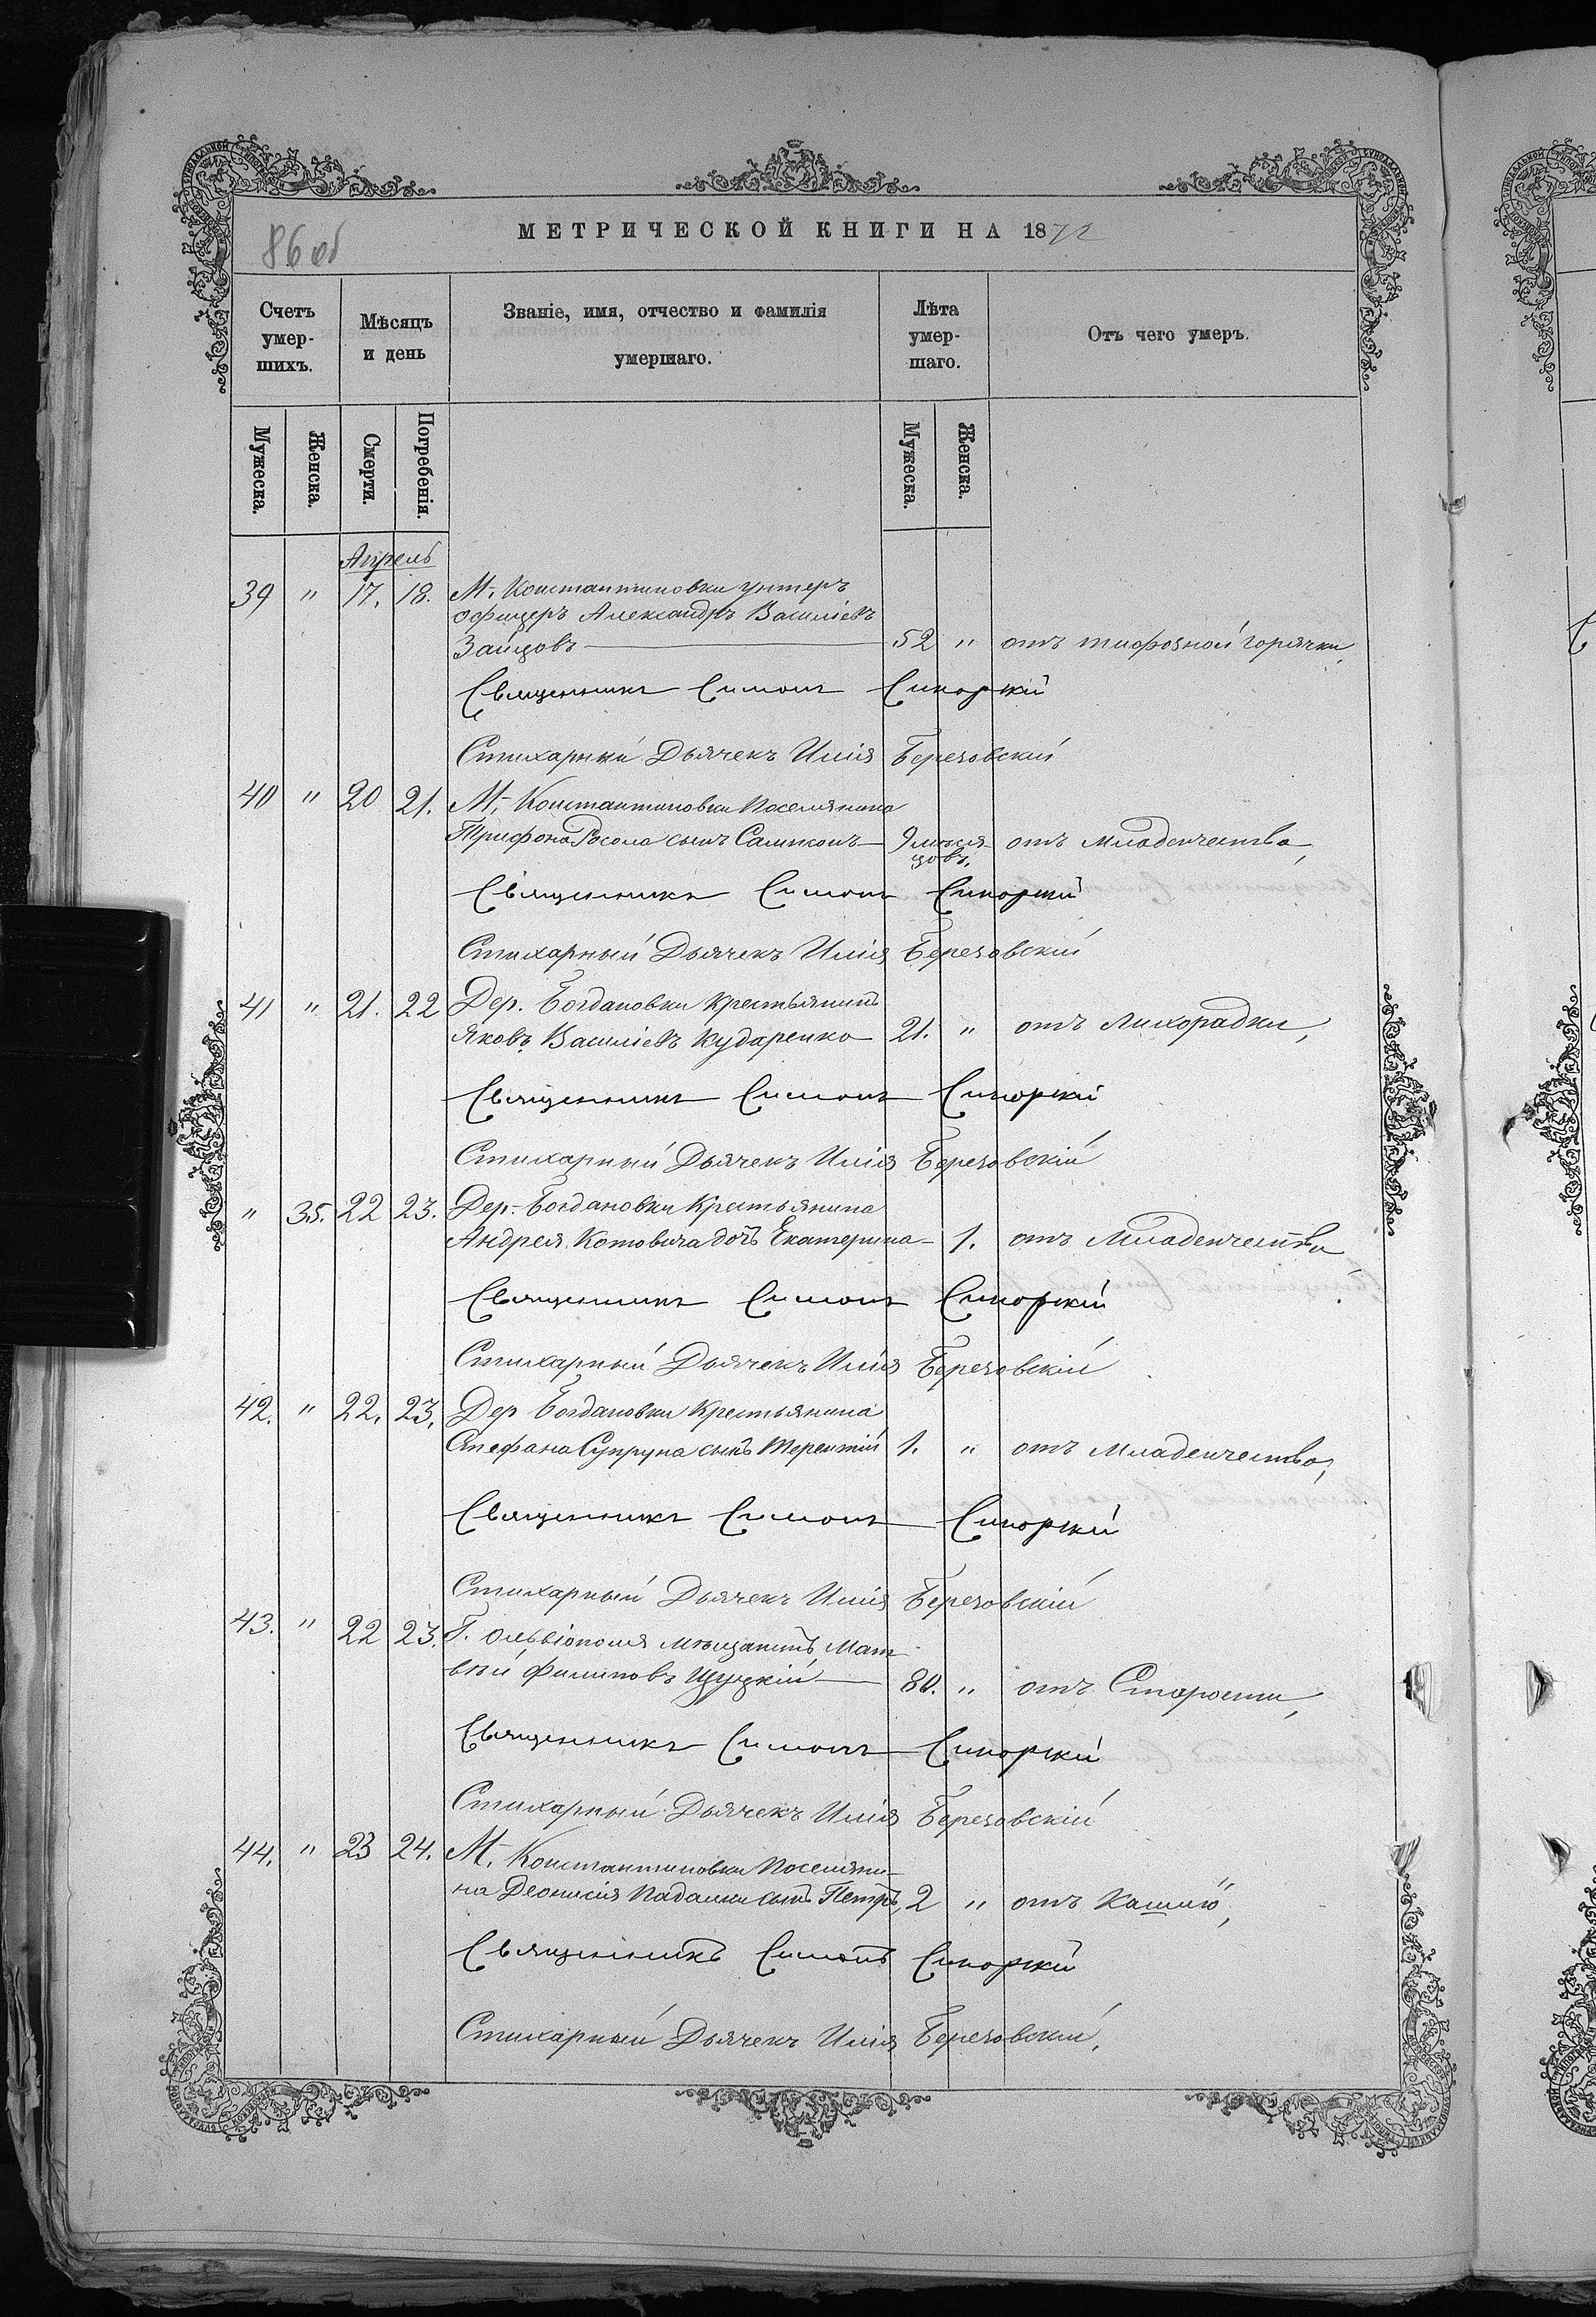 86 об
МЕТРИЧЕСКОЙ КНИГИ НА 1872
Счетъ умер- шихъ.
Мѣсяцъ и день
Званіе, имя, отчество и фамилія умершаго.
Лѣта умер- шаго.
Отъ чего умеръ.
Мужеска. Женска. Смерти. Погребенія. Мужеска. Женска.
Апрель
39 " 17. 18. М. Константиновки унтеръ
офицеръ Александръ Василіевъ
Зайцовъ — 52 " отъ тифозной горячки,
Священникъ Симонъ Сикорскій
Стихарный Дьячекъ Илія Березовскій
40 " 20 21. М. Константиновки Поселянина
Трифона Росола сынъ Сампсонъ — 9 мѣся-
цовъ. отъ Младенчества,
Священникъ Симонъ Сикорскій
Стихарный Дьячекъ Илія Березовскій
41 " 21. 22 Дер. Богдановки Крестьянинъ
Яковъ Василіевъ Кударенко 21. " отъ Лихорадки,
Священникъ Симонъ Сикорскій
Стихарный Дьячекъ Илія Березовскій
" 35. 22 23. Дер. Богдановки Крестьянина
Андрея Котовича дочь Екатерина — 1. отъ Младенчества
Священникъ Симонъ Сикорскій
Стихарный Дьячекъ Илія Березовскій
42. " 22. 23. Дер Богдановки Крестьянина
Стефана Супруна сынъ Терентій 1. " отъ Младенчества,
Священникъ Симонъ Сикорскій
Стихарный Дьячекъ Илія Березовскій
43. " 22 23. Г. Ольвіополя мѣщанинъ Мат-
вѣй Филиповъ — 80. " отъ Старости,
Священникъ Симонъ Сикорскій
Стихарный Дьячекъ Илія Березовскій
44. " 23 24. М. Константиновки Поселяни-
на Деонисія Падалки сынъ Петръ, 2 " отъ Кашлю,
Священникъ Симонъ Сикорскій
Стихарный Дьячекъ Илія Березовскій.